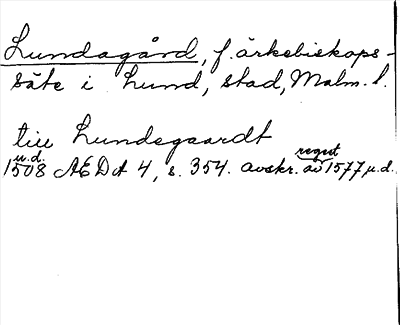 Lundagård, f. ärkebiskops-
säte i Lund, stad, Malm. l.
till Lundegaardt
1508 u.d. AEDA 4, s. 354. avskr. av regest 1577 u.d.